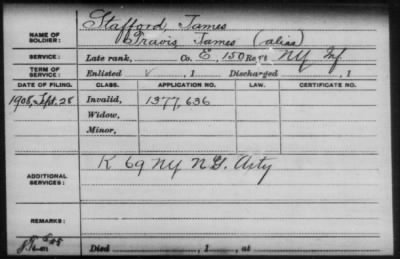 Stafford, James
NAME OF SOLDIER: Travis James (alias)
SERVICE: Late rank, Co. E, 150 Reg't NY Inf.
TERM OF SERVICE: Enlisted , 1 Discharged , 1
DATE OF FILING. CLASS. APPLICATION NO. LAW. CERTIFICATE NO.
1908, Sept. 28 Invalid, 1377,636
Widow,
Minor,
ADDITIONAL SERVICES: K 69 NY N.G. Arty
REMARKS:
Died , 1 , at